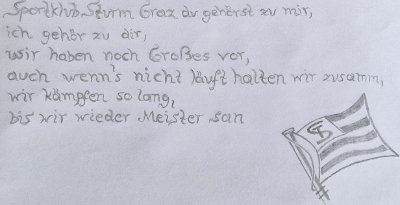 Sportklub Sturm Graz du gehörst zu mir,
ich gehör zu dir,
wir haben noch Großes vor,
auch wenn's nicht läuft halten wir zusamm,
wir kämpfen so lang,
bis wir wieder Meister san